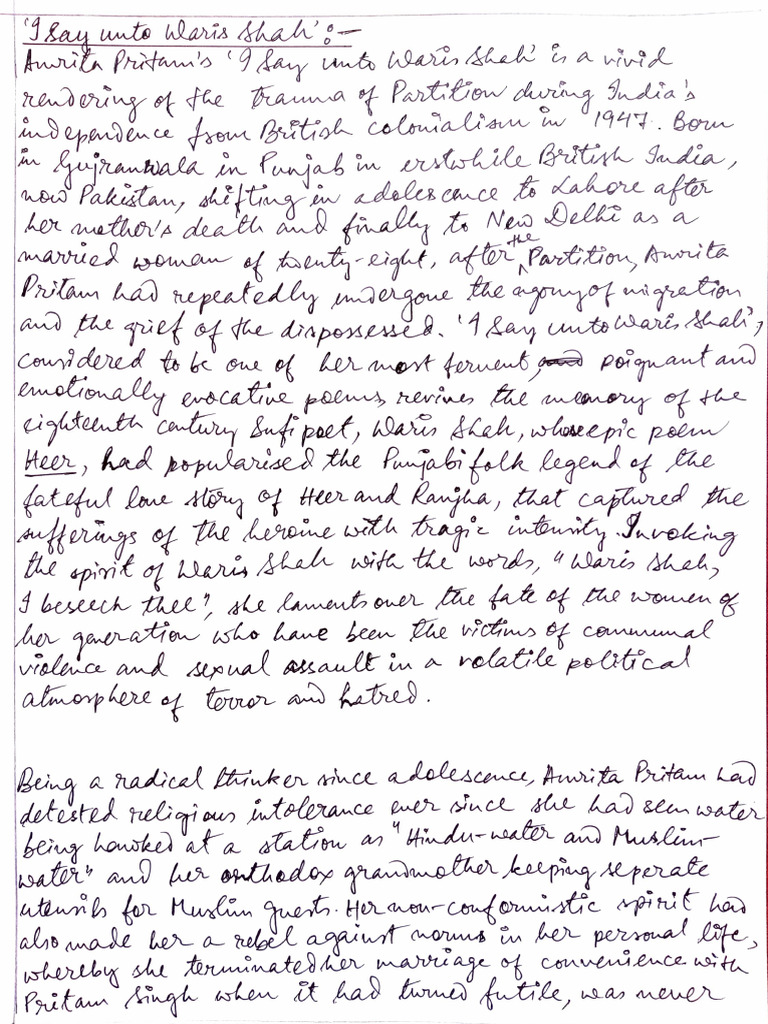 'I Say unto Waris Shah' :-
Amrita Pritam's 'I Say unto Waris Shah' is a vivid
rendering of the trauma of Partition during India's
independence from British colonialism in 1947. Born
in Gujranwala in Punjab in erstwhile British India,
now Pakistan, shifting in adolescence to Lahore after
her mother's death and finally to New Delhi as a
married woman of twenty-eight, after the Partition, Amrita
Pritam had repeatedly undergone the agony of migration
and the grief of the dispossessed. 'I Say unto Waris Shah',
considered to be one of her most fervent, poignant and
emotionally evocative poems, revives the memory of the
eighteenth century Sufi poet, Waris Shah, whose epic poem
Heer, had popularised the Punjabi folk legend of the
fateful love story of Heer and Ranjha, that captured the
sufferings of the heroine with tragic intensity. Invoking
the spirit of Waris Shah with the words, "Waris Shah,
I beseech thee", she laments over the fate of the women of
her generation who have been the victims of communal
violence and sexual assault in a volatile political
atmosphere of terror and hatred.
Being a radical thinker since adolescence, Amrita Pritam had
detested religious intolerance ever since she had seen water
being hawked at a station as "Hindu-water and Muslim-
water" and her orthodox grandmother keeping seperate
utensils for Muslim guests. Her non-conformistic spirit had
also made her a rebel against norms in her personal life,
whereby she terminated her marriage of convenience with
Pritam Singh when it had turned futile, was never